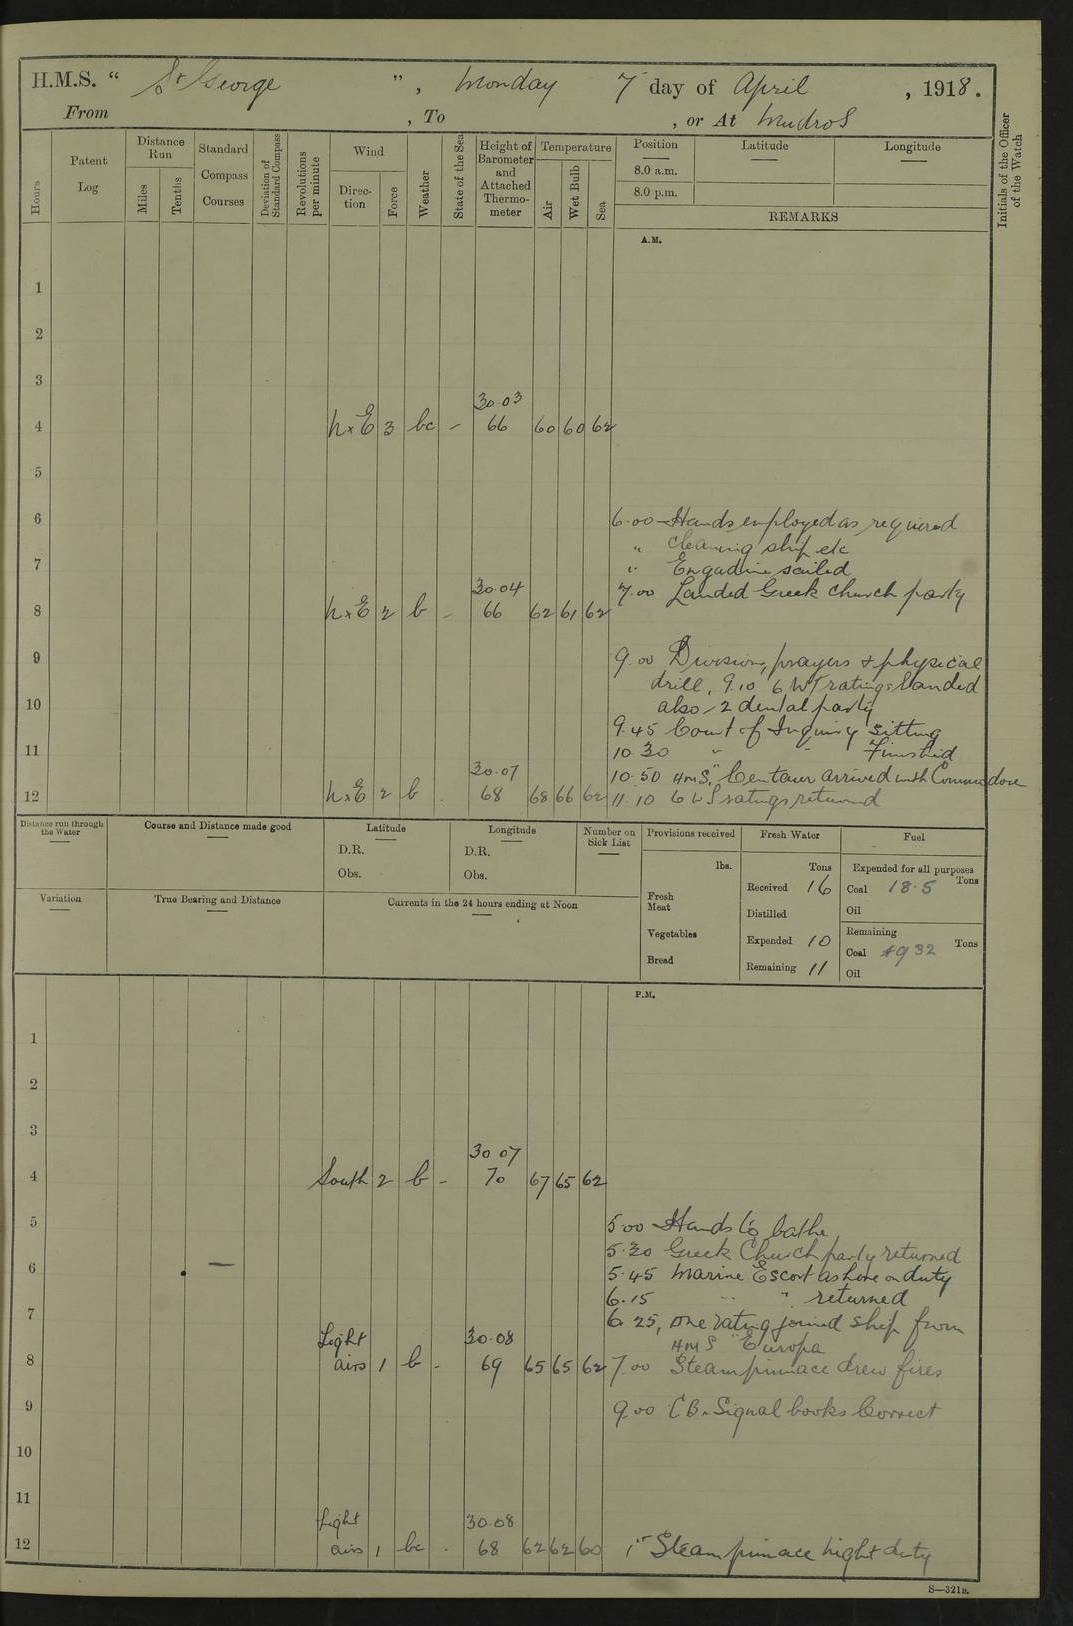 H.M.S. “ St George ”, Monday 7 day of April , 1918.
From , To , or At Mudros
Hours
Patent Log
Distance Run
Miles
Tenths
Standard Compass Courses
Deviation of Standard Compass
Revolutions per minute
Wind
Direction
Force
Weather
State of the Sea
Height of Barometer and Attached Thermometer
Temperature
Air
Wet Bulb
Sea
Position
8.0 a.m.
8.0 p.m.
Latitude
Longitude
REMARKS
Initials of the Officer of the Watch
A.M.
1
2
3
30.03
4 NxE 3 bc - 66 60 60 62
5
6 6.00 Hands employed as required
" cleaning ship etc
7 " Engadine sailed
30.04 7.00 Landed Greek Church party
8 NxE 2 b - 66 62 61 62
9 9.00 Division, prayers & physical
drill, 9.10 6 WT ratings landed
10 also 2 dental party
9.45 Court of Inquiry sitting
11 10.30 " " Finished
30.07 10.50 HMS "Centaur arrived with Commodore
12 NxE 2 b - 68 68 66 62 11.10 6 W S ratings returned
Distance run through the Water
Course and Distance made good
Latitude
D.R.
Obs.
Longitude
D.R.
Obs.
Number on Sick List
Provisions received
lbs.
Fresh Meat
Vegetables
Bread
Fresh Water
Tons
Received 16
Distilled
Expended 10
Remaining 11
Fuel
Expended for all purposes
Coal 18.5 Tons
Oil
Remaining
Coal 932 Tons
Oil
Variation
True Bearing and Distance
Currents in the 24 hours ending at Noon
P.M.
1
2
3
30 07
4 South 2 b - 70 67 65 62
5 5.00 Hands to bathe
5.30 Greek Church party returned
6 5.45 Marine Escort ashore on duty
6.15 " " returned
7 6.25, one rating joined ship from
Light 30.08 HMS "Europa
8 airs 1 b - 69 65 65 62 7.00 Steam pinnace drew fires
9 9.00 CB. Signal books Correct
10
11
Light 30.08
12 airs 1 bc - 68 62 62 60 1st Steam pinnace night duty
S—321B.